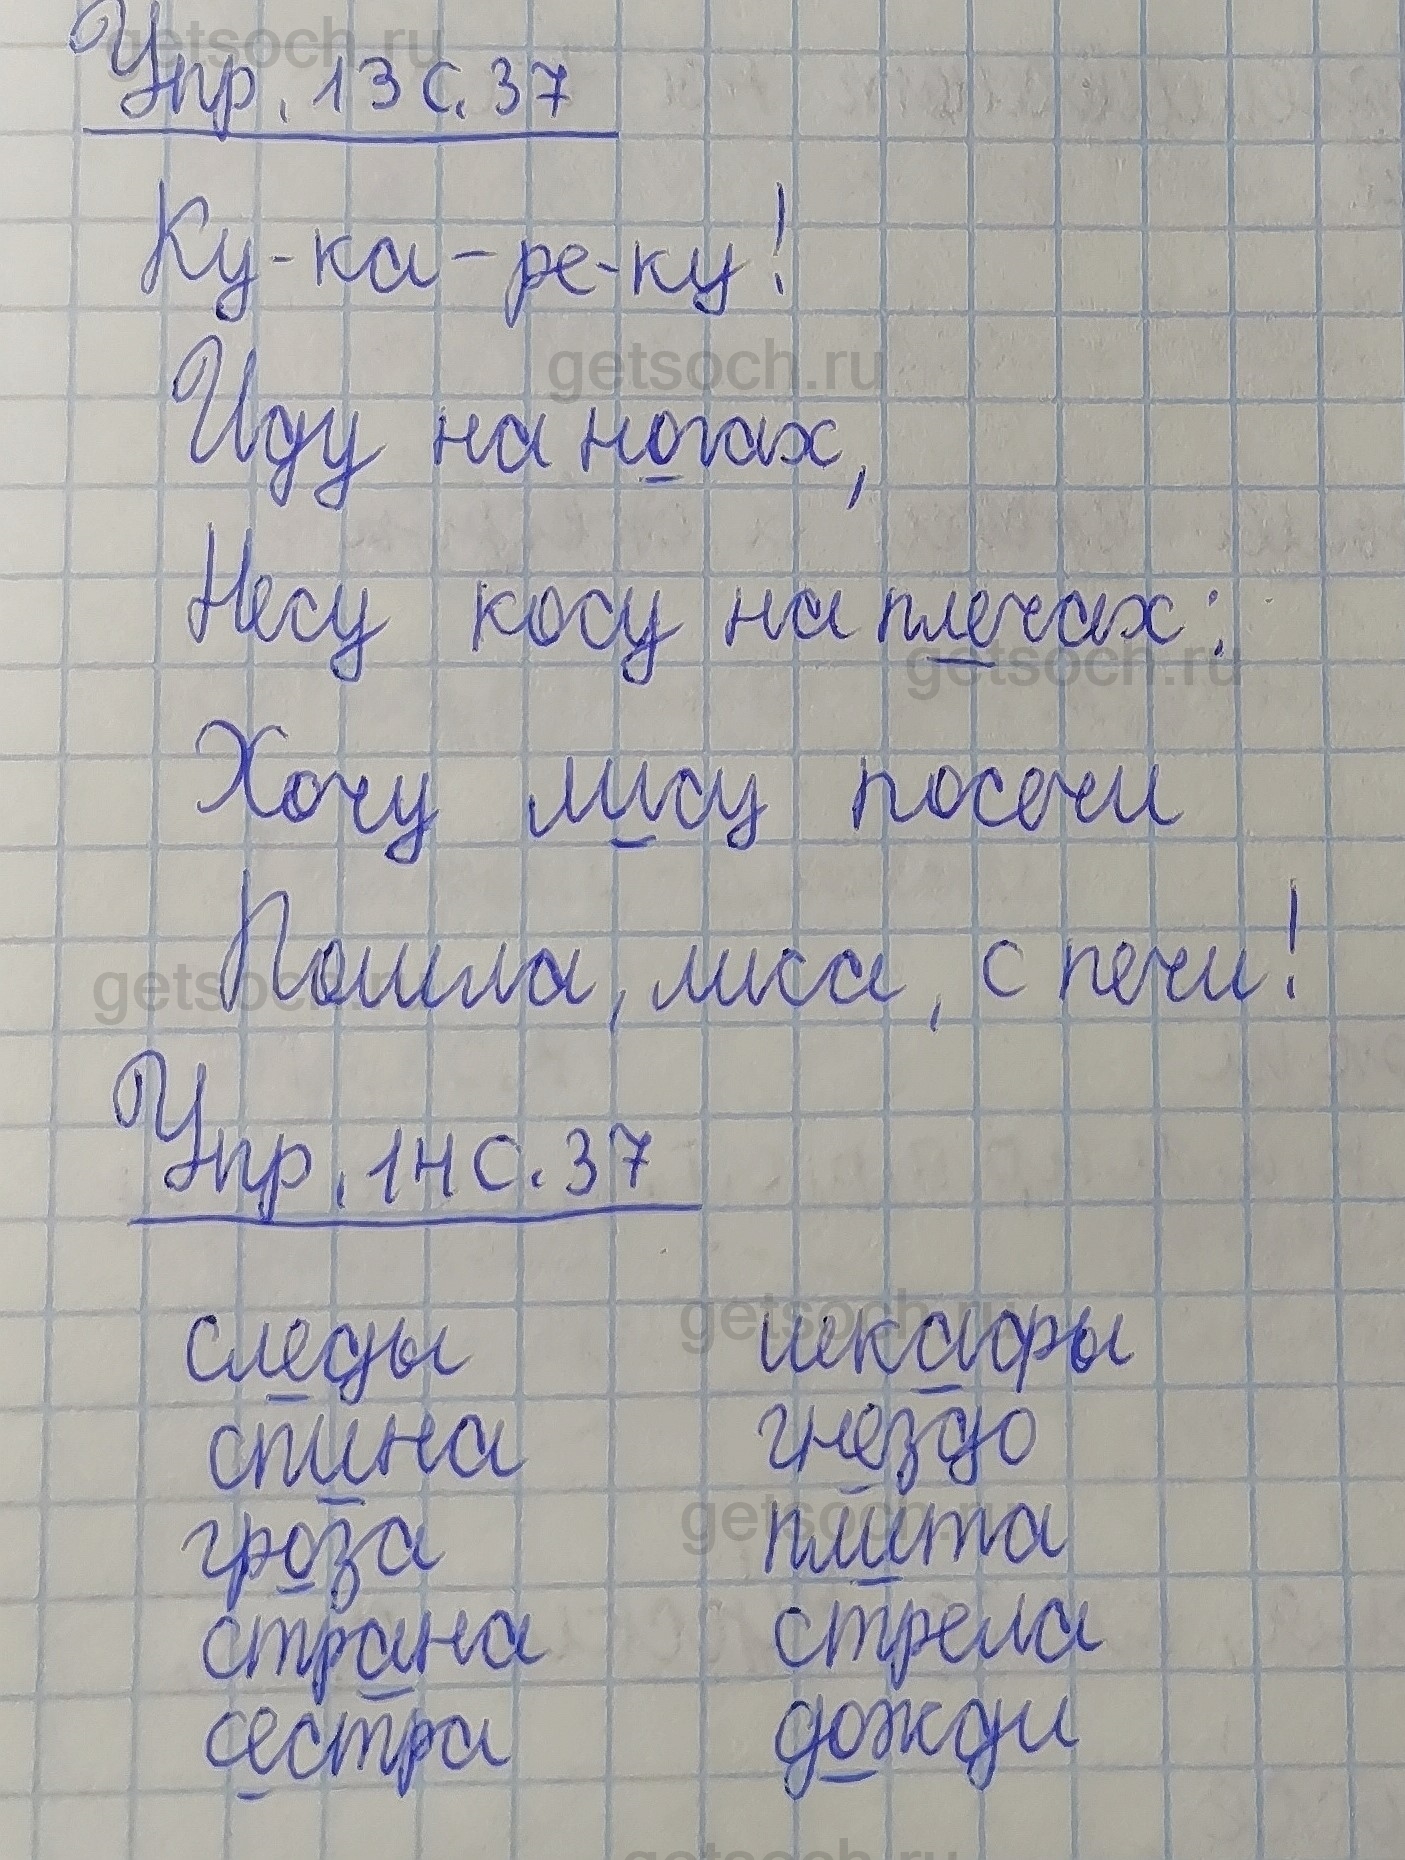 Упр. 13 с. 37
Ку-ка-ре-ку!
Иду на ногах,
Несу косу на плечах:
Хочу лису посечи
Пошла, лиса, с печи!
Упр. 14 с. 37
следы шкафы
спина гнездо
гроза плита
страна стрела
сестра дожди
getsoch.ru
getsoch.ru
getsoch.ru
getsoch.ru
getsoch.ru
getsoch.ru
getsoch.ru